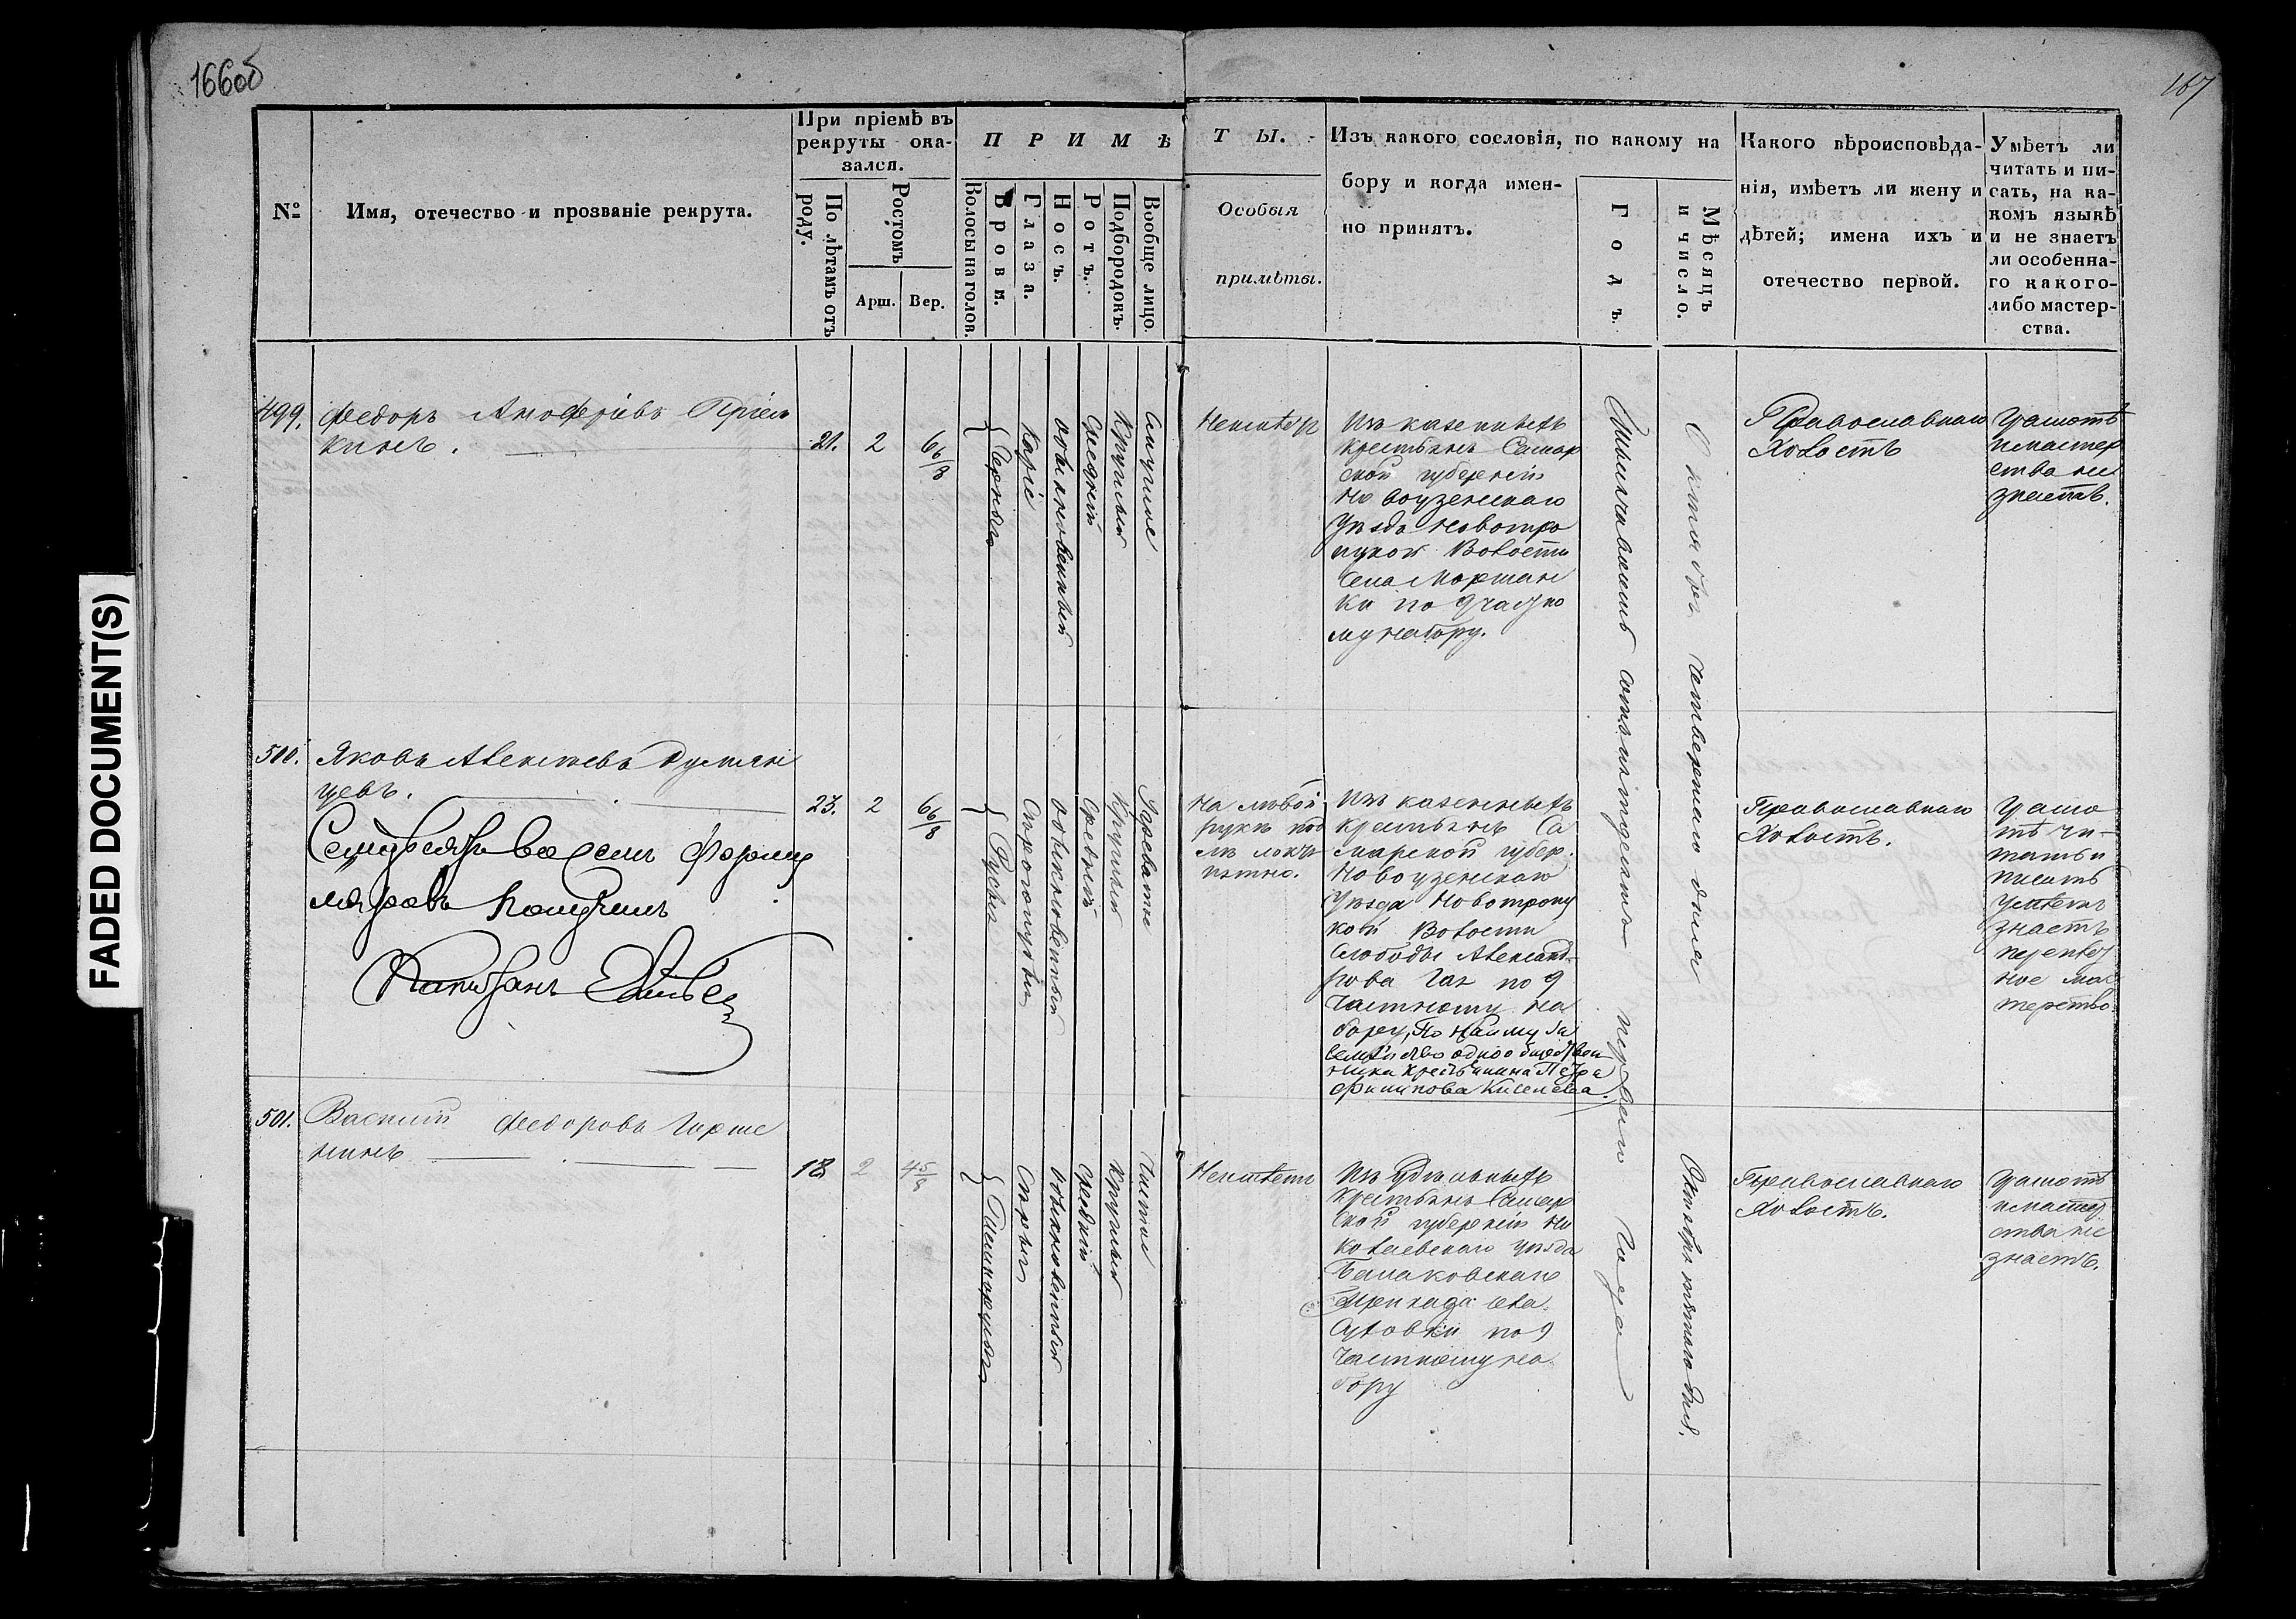 166об
167
FADED DOCUMENT(S)
№
Имя, отечество и прозваніе рекрута.
При пріемѣ въ
рекруты ока-
зался.
По лѣтамъ отъ
роду.
Ростомъ
Арш.
Вер.
П Р И М Ѣ
Волосы на голов.
Брови.
Глаза.
Носъ.
Ротъ.
Подбородокъ.
Вообще лицо.
Т Ы.
Особыя
примѣты.
Изъ какого сословія, по какому на
бору и когда имен-
но принятъ.
Годъ.
Мѣсяцъ
и число.
Какого вѣроисповѣда-
нія, имѣетъ ли жену и
дѣтей; имена ихъ и
отечество первой.
Умѣетъ ли
читать и пи-
сать, на ка-
комъ языкѣ
и не знаетъ
ли особенна-
го какого-
либо мастер-
ства.
499.
Федоръ
кинъ.
21.
2
6 6/8
Черныя
Каріе
обыкновенный
Средній
Круглый
Смуглое
Изъ казенныхъ
крестьянъ Самар
ской губерніи
Новоузенскаго
уѣзда Новотро
ицкой Волости
Села Моршан
ки по 9 частно
му набору.
Тысяча восемь сотъ шестдесятъ перваго Года
Октября четвертаго дня
Православнаго
Холостъ
Грамотѣ
и мастер
ства не
знаетъ.
500.
Яковъ Алексѣевъ Румян
цевъ.
23.
2
6 6/8
Русыя
обыкновенный
Средній
Круглый
На лѣвой
рукѣ
пятно.
Изъ казенныхъ
крестьянъ Са
марской губер.
Новоузенскаго
Уѣзда Новотроиц
кой Волости
Слободы Александ-
рова Гая по 9
частному на
бору, По найму за
семѣйство однообществен
ника крестьянина Петра
Филипова Киселева.
Православнаго
Холостъ.
Грамо
тѣ чи-
тать и
писать
умѣетъ
знаетъ
переплет
ное мас
терство.
формуляровъ получилъ
Капитанъ
501.
Василій Федоровъ Горше
нинъ
18
2
4 5/8
Темнорусыя
Сѣрыя
обыкновенный
Средній
Круглый
Чистое
Изъ удѣльныхъ
крестьянъ Самар
ской губерніи Ни
колаевскаго уѣзда
Балаковскаго
Приказа села
Суловки по 9
частному на
бору
Октября пятаго дня.
Православнаго
Холостъ.
Грамотѣ
и мастер
ства не
знаетъ.